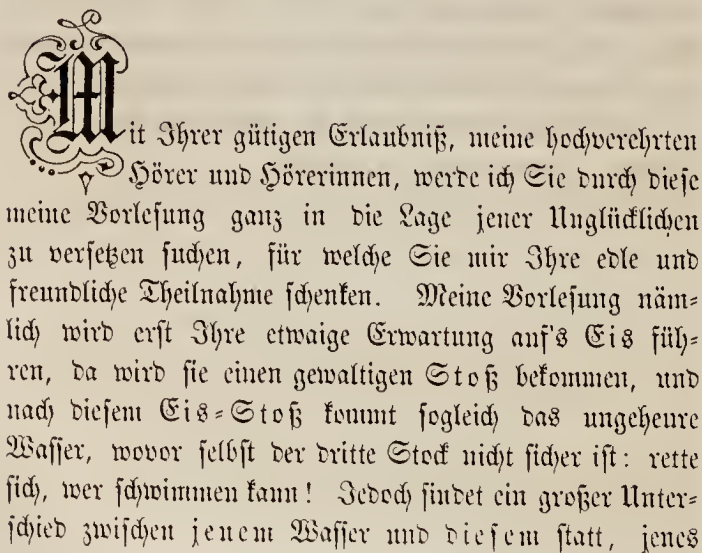 Mit Ihrer gütigen Erlaubniß, meine hochverehrten
Hörer und Hörerinnen, werde ich Sie durch diese
meine Vorlesung ganz in die Lage jener Unglücklichen
zu versetzen suchen, für welche Sie mir Ihre edle und
freundliche Theilnahme schenken. Meine Vorlesung näm-
lich wird erst Ihre etwaige Erwartung auf's Eis füh-
ren, da wird sie einen gewaltigen Stoß bekommen, und
nach diesem Eis-Stoß kommt sogleich das ungeheure
Wasser, wovor selbst der dritte Stock nicht sicher ist: rette
sich, wer schwimmen kann! Jedoch findet ein großer Unter-
schied zwischen jenem Wasser und diesem statt, jenes